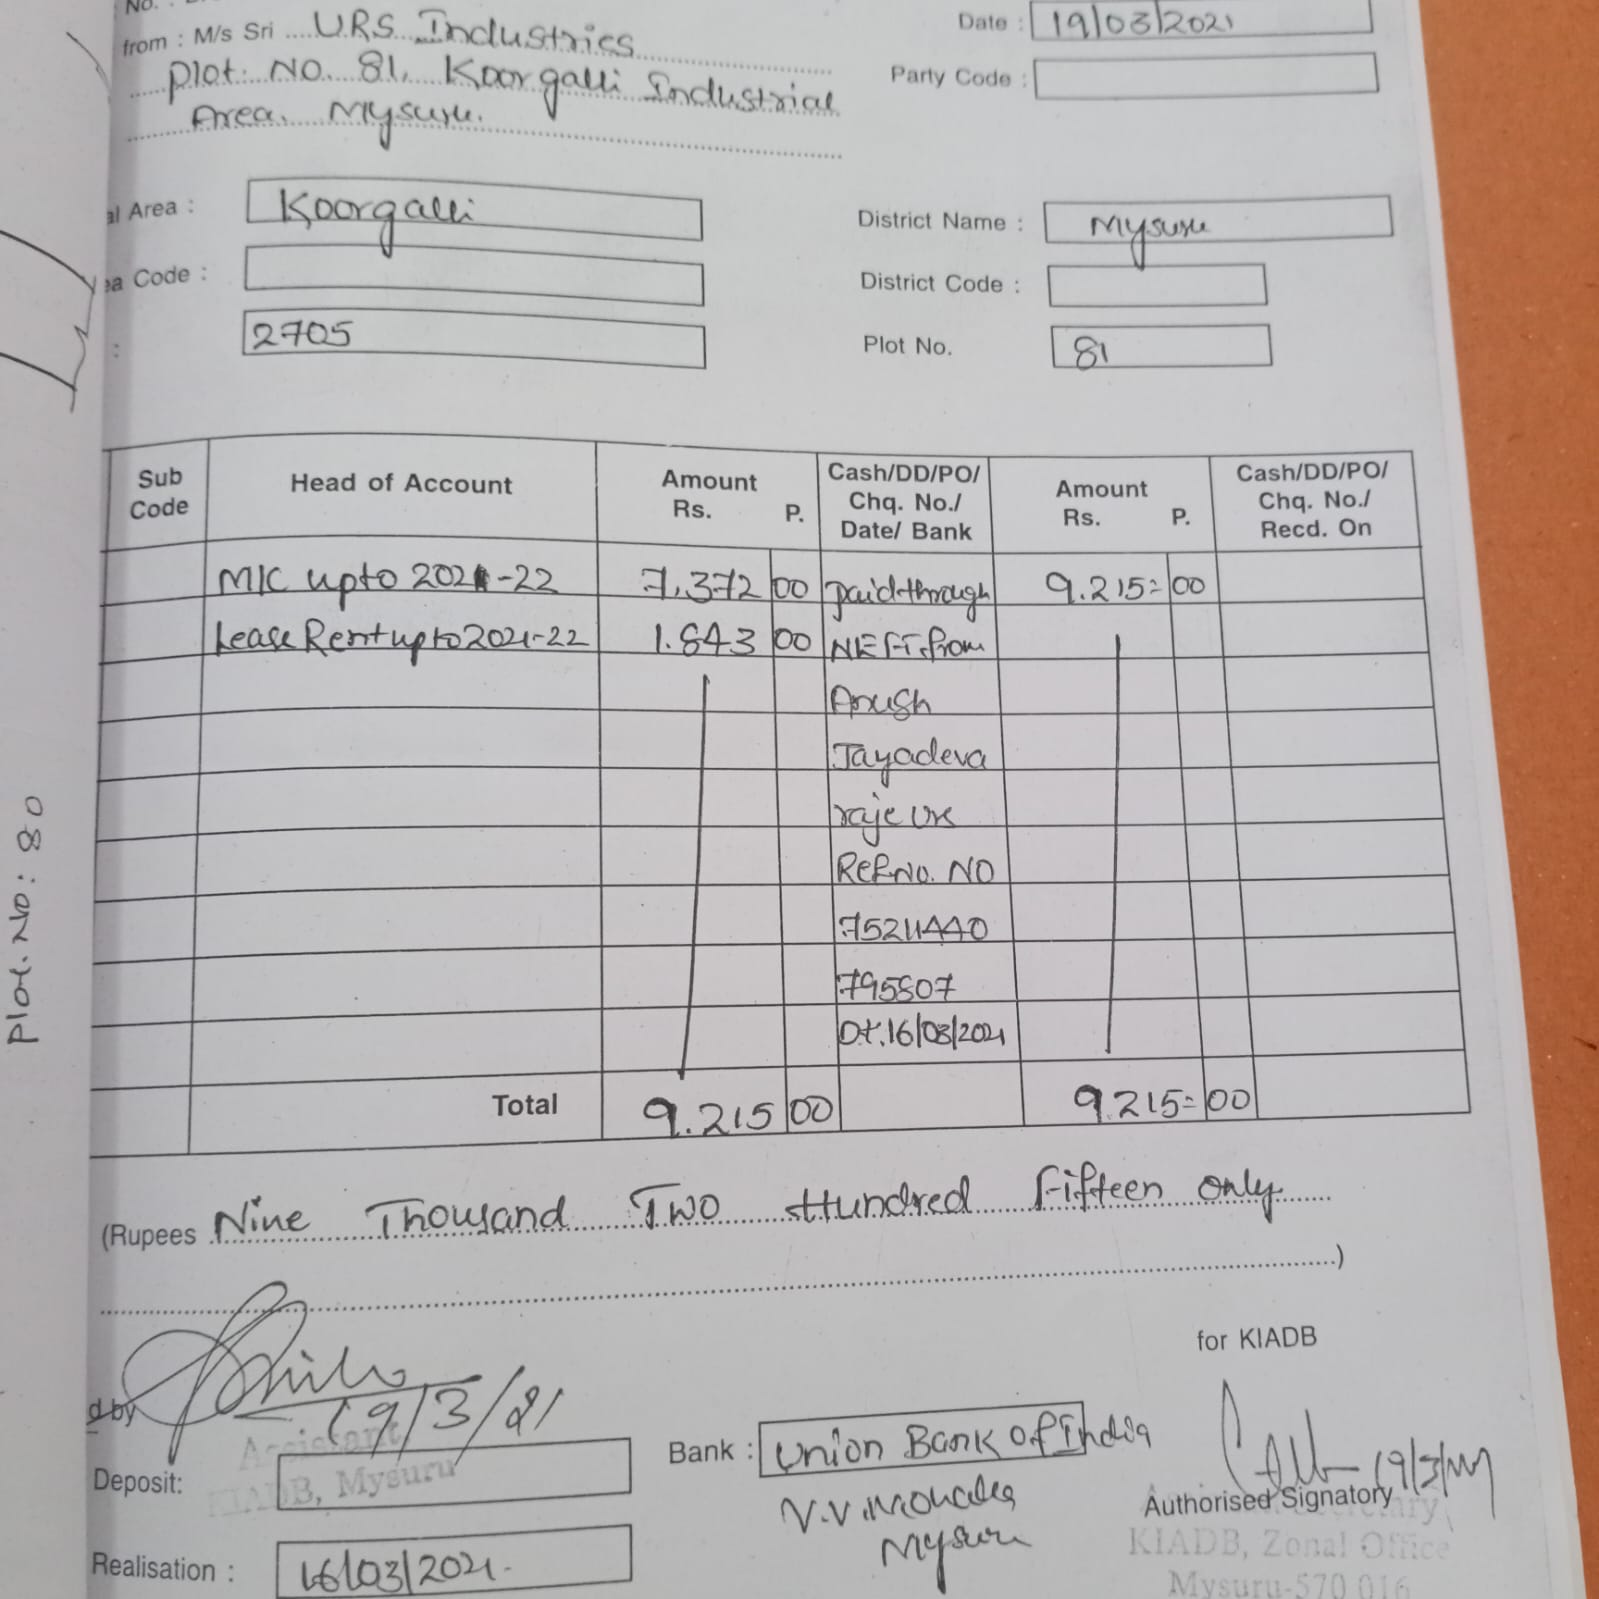 No.
from : M/s Sri URS Industries
Plot. No. 81, Koorgalli Industrial
Area. Mysuru.
Date : 19/03/2021
Party Code :
al Area : Koorgalli
District Name : Mysuru
ea Code :
District Code :
: 2705
Plot No. 81
Sub Code Head of Account Amount Rs. P. Cash/DD/PO/ Chq. No./ Date/ Bank Amount Rs. P. Cash/DD/PO/ Chq. No./ Recd. On
M/C upto 2021-22 7,372 00 paid through 9.215= 00
Lease Rent upto 2021-22 1.843 00 NEFT. from
Anush
Jayadeva
raje urs
Ref No. NO
75211440
795807
Dt. 16/03/2021
Total 9.215 00 9.215= 00
(Rupees Nine Thousand Two Hundred Fifteen only
)
for KIADB
d by 19/3/21
Assistant
KIADB, Mysuru
Deposit:
Bank : Union Bank of India
V.V. Mohalla
Mysuru
Authorised Signatory 19/3/21
KIADB, Zonal Office
Mysuru-570 016
Realisation : 16/03/2021.
Plot. No: 80